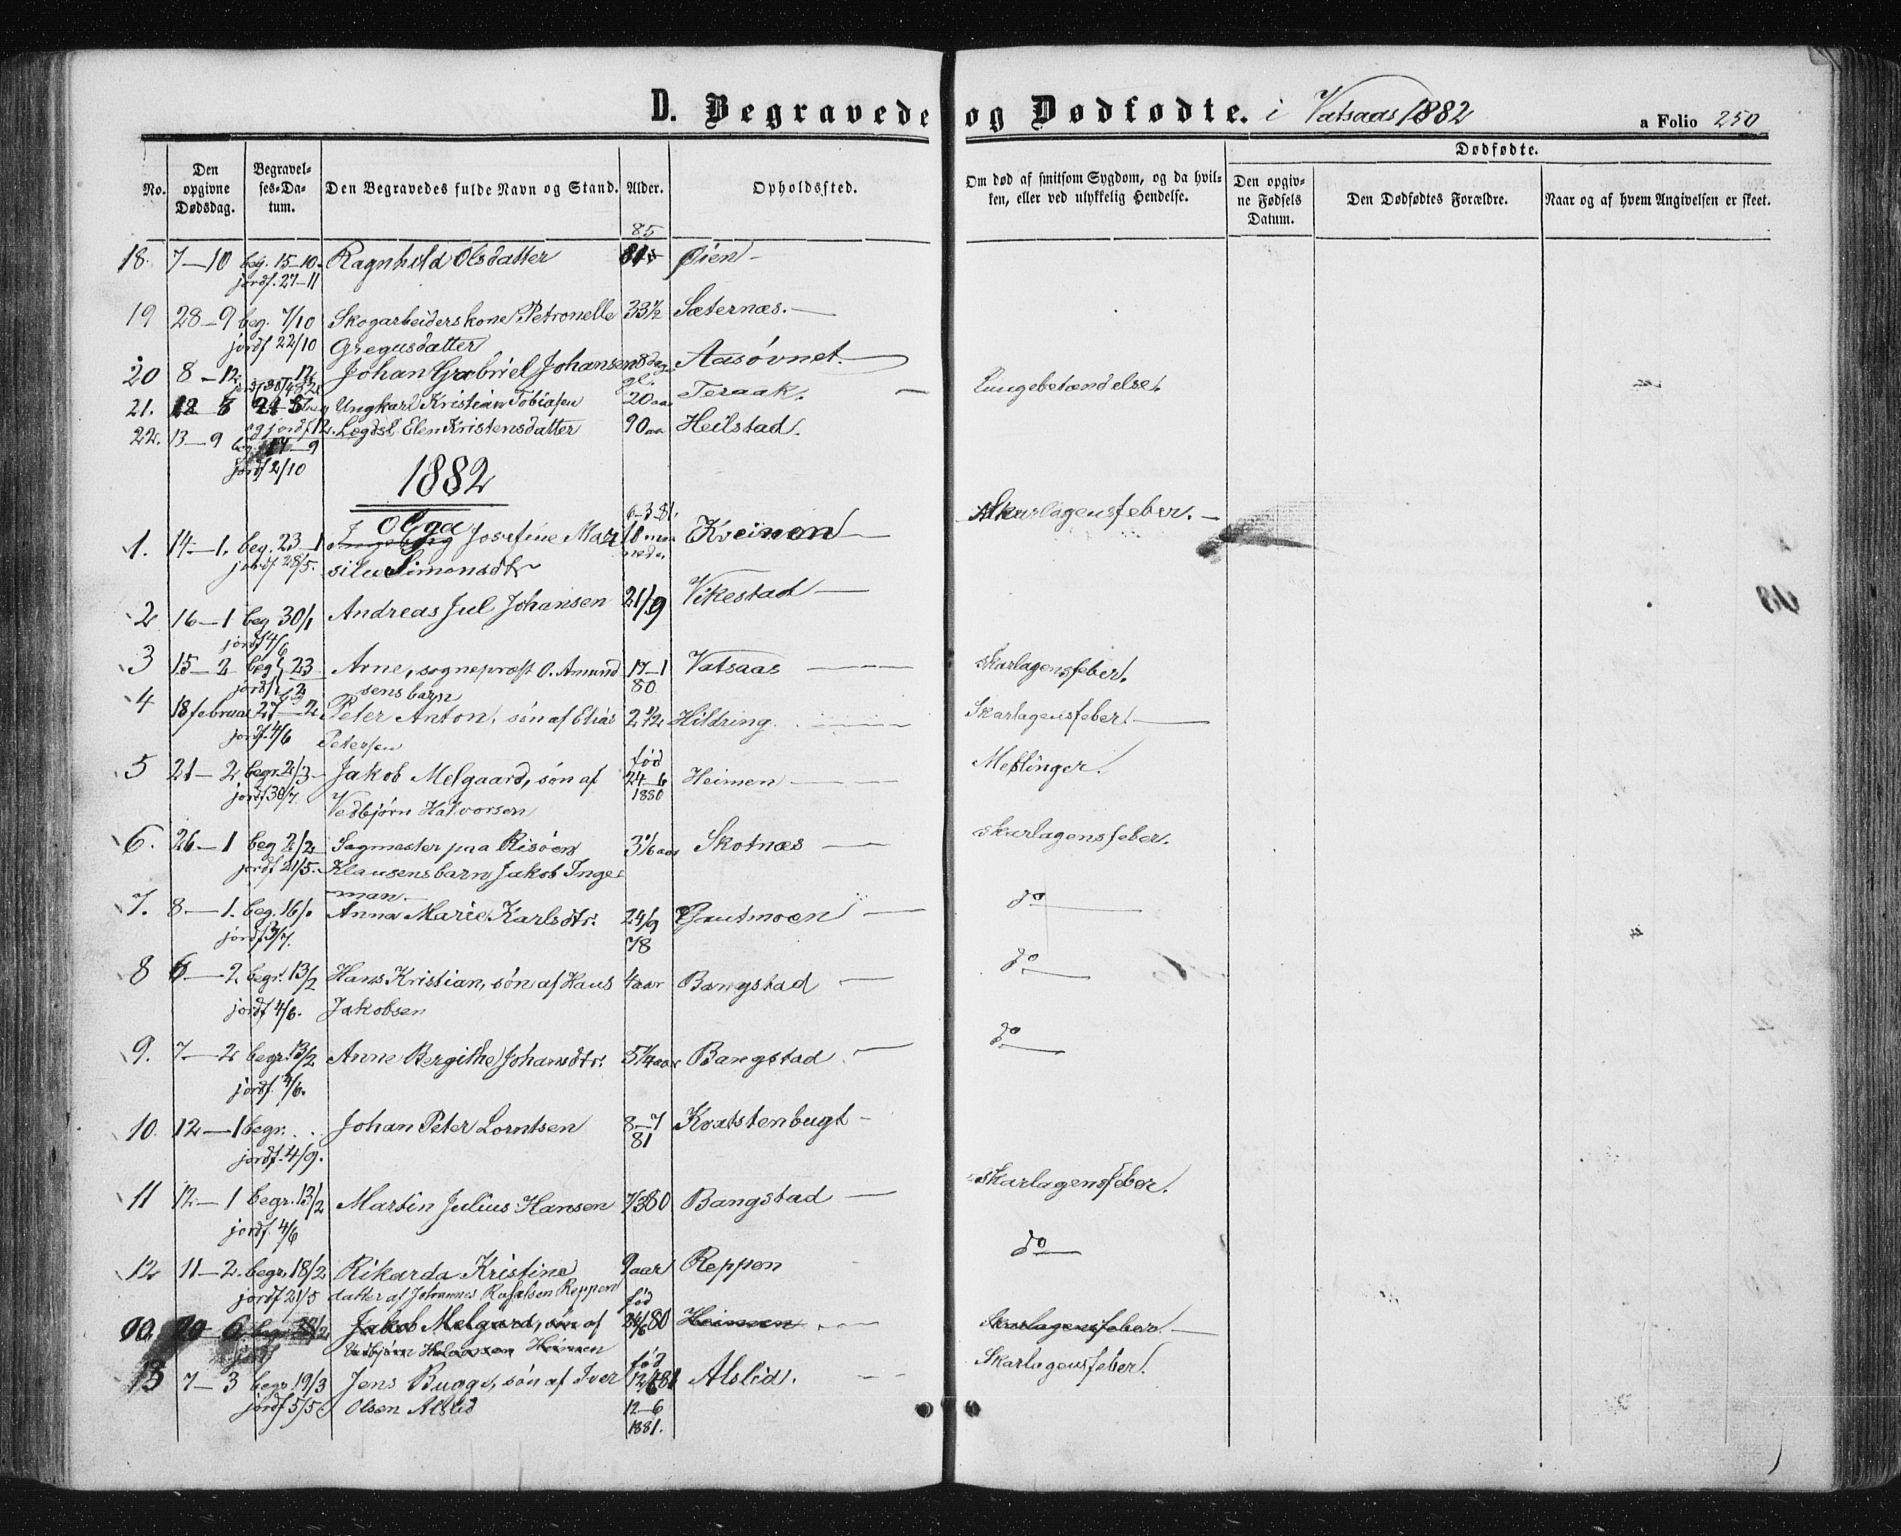 D. Begravede og Dødfødte. i Vatsaas 1882
a Folio 250
No.
Den opgivne Dødsdag.
Begravelses-Datum.
Den Begravedes fulde Navn og Stand.
Alder.
Opholdssted.
Om død af smitsom Sygdom, og da hvilken, eller ved ulykkelig Hendelse.
Dødfødte.
Den opgivne Fødsels Datum.
Den Dødfødtes Forældre.
Naar og af hvem Angivelsen er skeet.
85
18. 7–10 beg. 15–10. Ragnhild Olsdatter Øien –
jordf. 27–11
19 28–9 beg. 7/10 Skogarbeiderskone Petronelle 33½ Sæternæs. –
jordf 22/10 Gregusdatter
20 8–12 Johan Gabriel Johansen 8 dage Aasøvnet. –
21. Ungkarl Kristian Tobiasen 20 aar Teraak. – Lungebetændelse.
22. 13–9 Lægdsl. Elen Kristensdatter 90 aar Heilstad.
jordf 2/10
1882
6–3–81.
1. 14–1. beg. 23–1 Olga Josefine Mar 18 maa Kveinen – Skarlagensfeber. –
jordf 28/5. silie Simonsdtr neder
2 16–1 beg 30/1 Andreas Jul Johansen 21/9 Vikestad –
jordf 4/6
3 15–2 beg 23 Arne, sogneprest O. Amund 17–1 Vatsaas – skarlagensfeber.
sens barn 80
4 18 februar 27–2. Peter Anton, søn af Elias 2½ Hildring. Skarlagensfeber! –
jordf. 4/6 Petersen
5 21–2 begr. 2/3 Jakob Melgaard, søn af født 24–6 1880 Heimen – Meslinger.
jordf 30/7 Vedbjørn Halvorsen
6. 26–1 beg 2/2 Sagmester paa Risøen 3 1/6 aar Skotnæs – skarlagensfeber.
jordf 21/5. Klausens barn Jakob Inge-
man. –
7. 8–1. beg. 16/1 Anna Marie Karlsdtr. 24/9 Gautmoen – do –
jordf 3/7. 78
8 6–2 begr. 13/2 Hans Kristian, søn af Hans 4 aar Bangstad – do –
jordf 4/6. Jakobsen
9. 7–2 begr. 13/2 Anne Bergithe Johansdtr. 5¼ aar Bangstad. – do –
jordf. 4/6.
10. 12–1 begr. . . Johan Peter Lorntsen 8–7 Kvatstenbugt –
jordf. 4/9. 81
11 12–1 begr. 13/2 Martin Julius Hansen 7/3 80 Bangstad – skarlagensfeber.
jordf. 4/6
12 11–2. begr. 18/2 Rikarda Kristine 9 aar Reppen do –
jordf 21/5 datter af Johannes Rafalsen Reppen
Jakob Melgard, søn af født 24/6 80 Heimen – Skarlagensfeber. –
jordf Vedbjørn Halvorsen Heimen
13 7–3 begr. 19/3 Jens Bugge, søn af Iver født 12/6 81 Alslid. – Skarlagensfeber!
jordf 5/5 Olsen Alslid 12–6
1881.